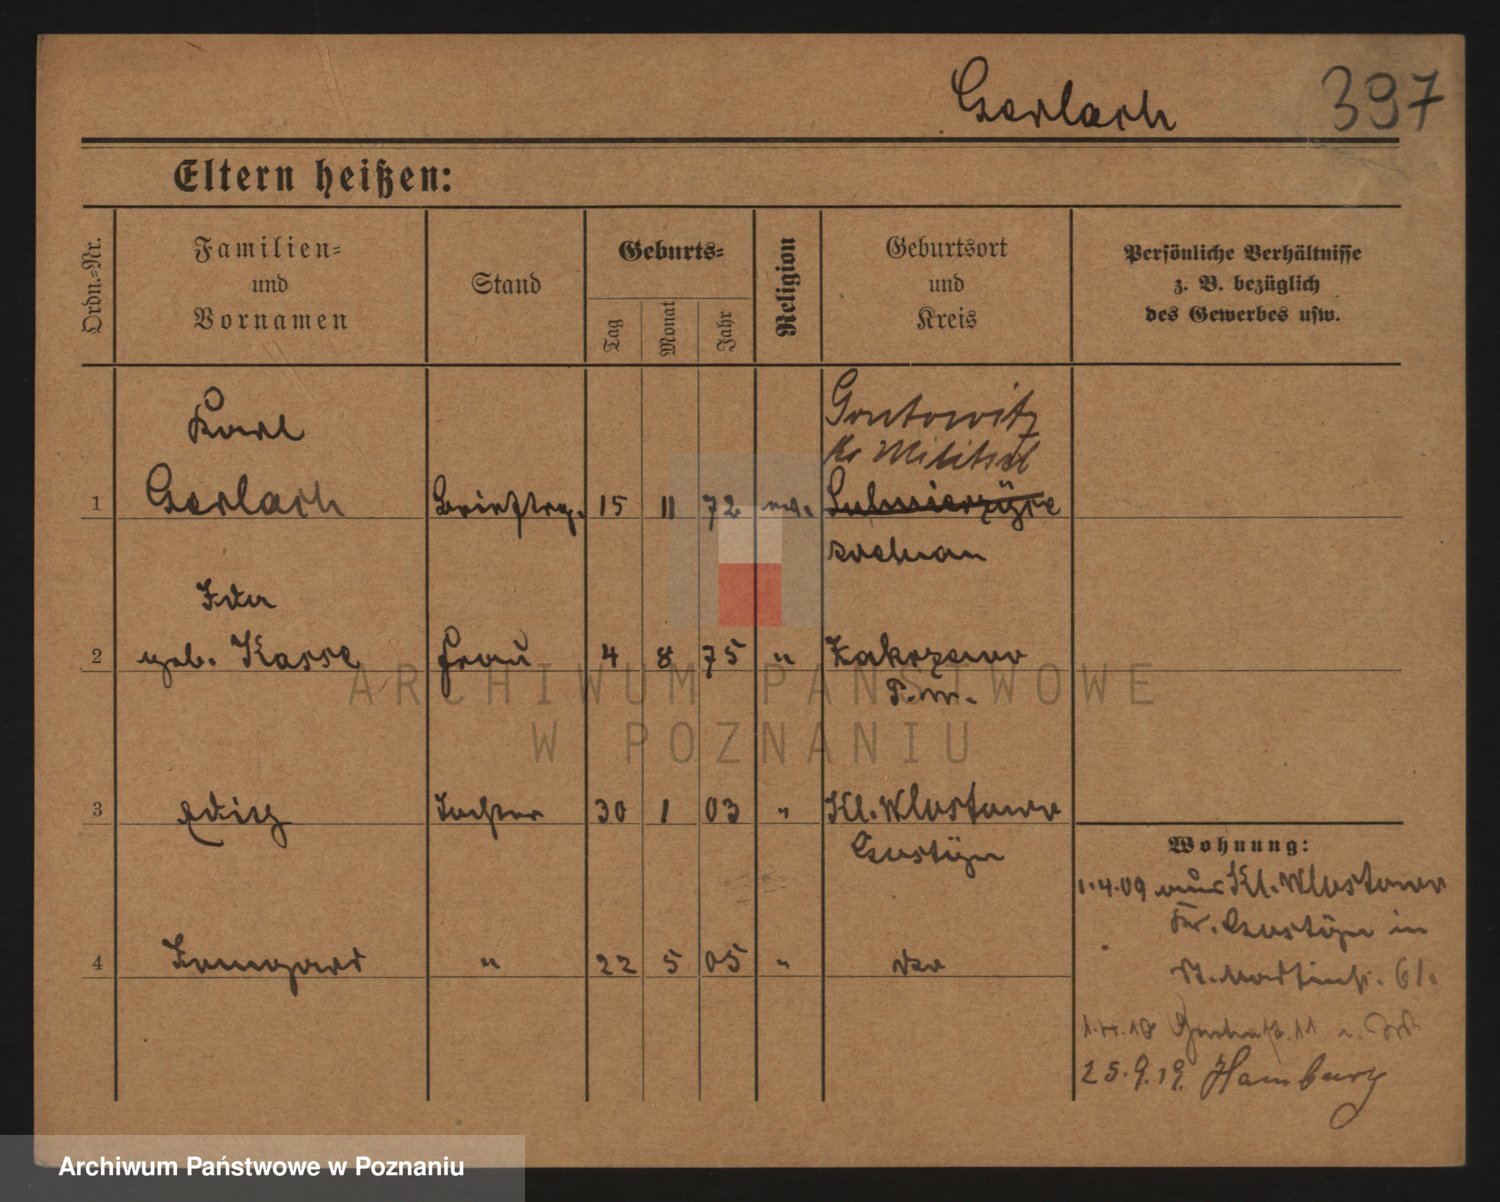 Gerlach 397
Eltern heißen:
Ordn.-Nr.
Familien-
und
Vornamen
Stand
Geburts-
Tag
Monat
Jahr
Religion
Geburtsort
und
Kreis
Persönliche Verhältnisse
z. B. bezüglich
des Gewerbes usw.
Karl
Gontowitz
Kr Militsch
1 Gerlach Briefträg. 15 11 72 ev. Sulmierzÿce
Ida
2 geb. Kasse Frau 4 8 75 " Zakrzewo
P. W.
3 Edith Tochter 30 1 03 " Kl. Wlostowo
Gostÿn
4 Irmgard " 22 5 05 " do
Wohnung:
1.4.09 aus Kl. Wlostowo
Kr. Gostÿn in
St. Martinstr. 61.
25.9.19. Hamburg
ARCHIWUM PAŃSTWOWE
W POZNANIU
Archiwum Państwowe w Poznaniu